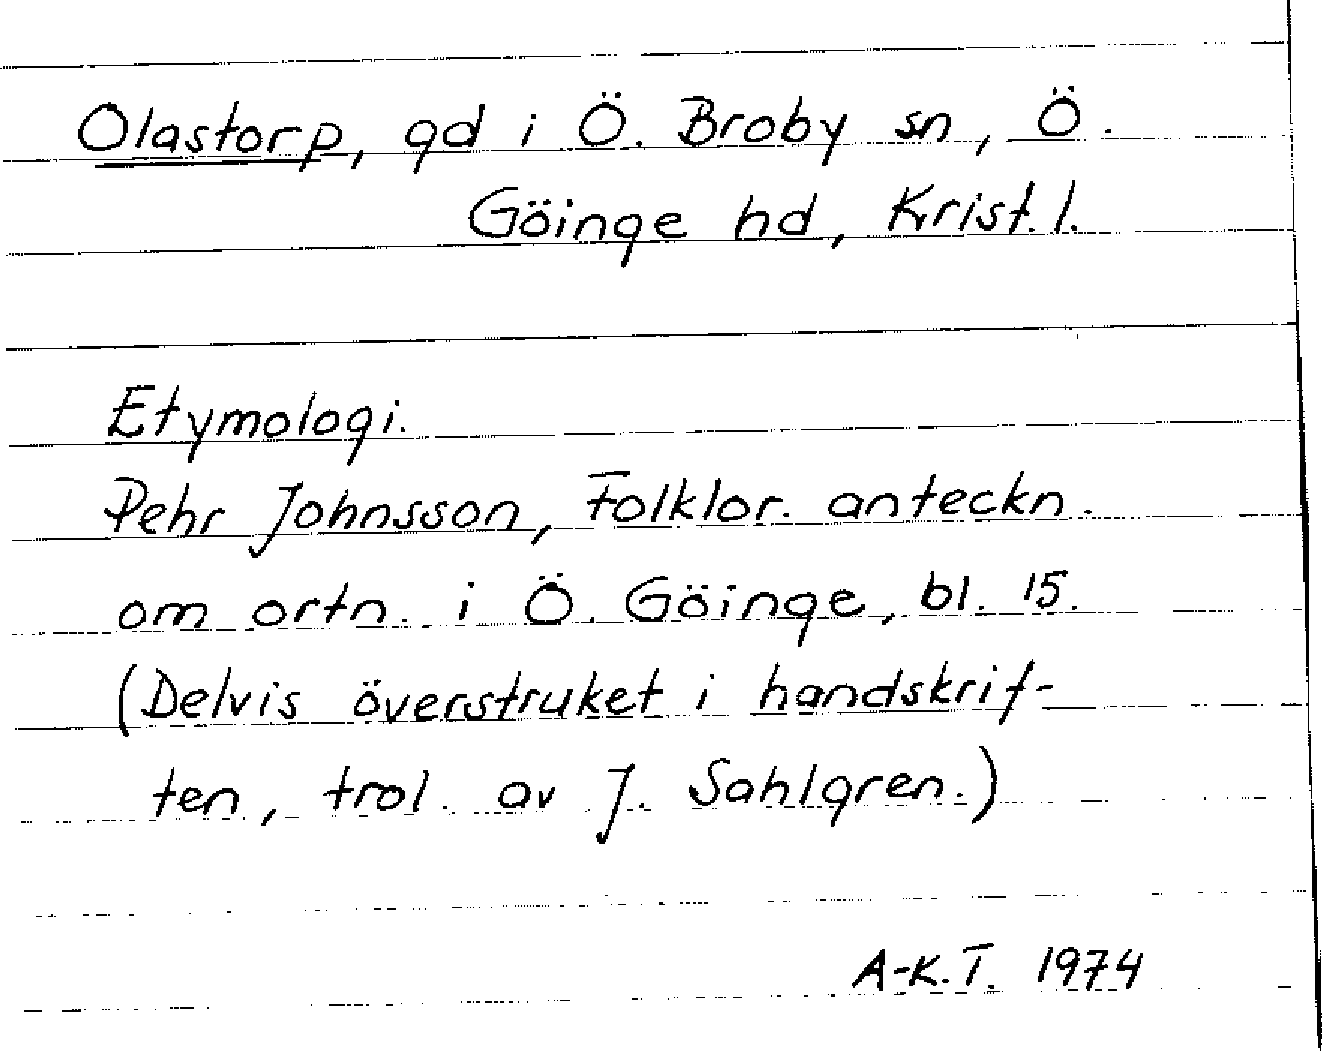 Olastorp, gd i Ö. Broby sn, Ö.
Göinge hd, Krist. l.
Etymologi.
Pehr Johnsson, Folklor. anteckn.
om ortn. i Ö. Göinge, bl. 15.
(Delvis överstruket i handskrif-
ten, trol. av J. Sahlgren.)
A-K.T. 1974